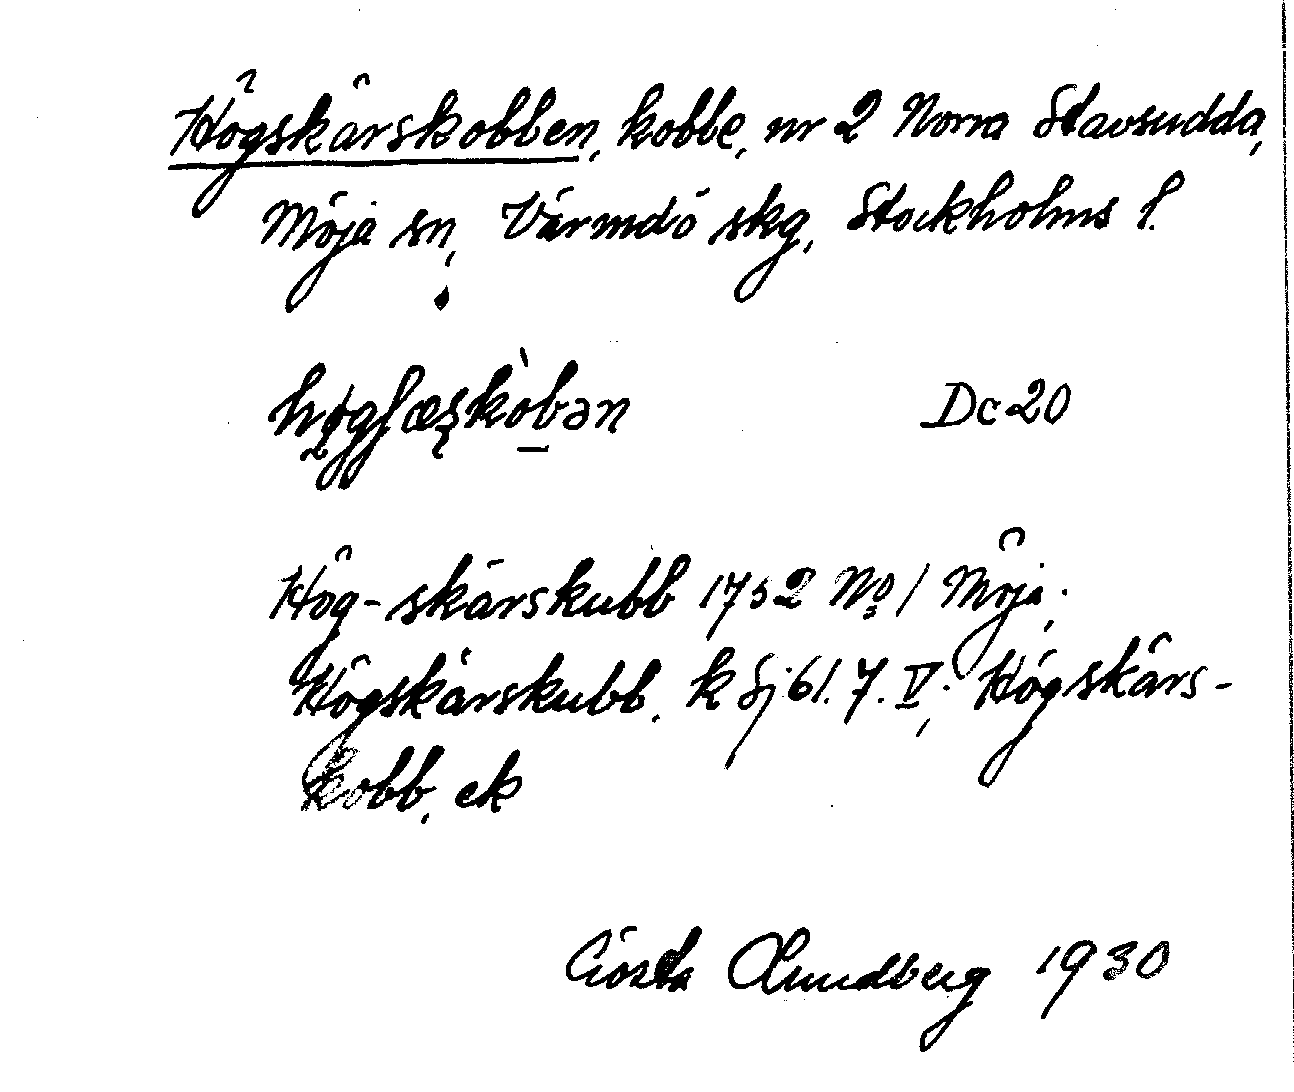 Högskärskobben, kobbe, nr 2 Norra Stavsudda,
Möja sn, Värmdö skg, Stockholms l.
høgʃæʂkòban Dc 20
Hög-skärskubb 1752 No 1 Möja;
Högskärskubb. k Sj 61. 7. V; Högskärs-
kobb, ek
Gösta Lundberg 1930